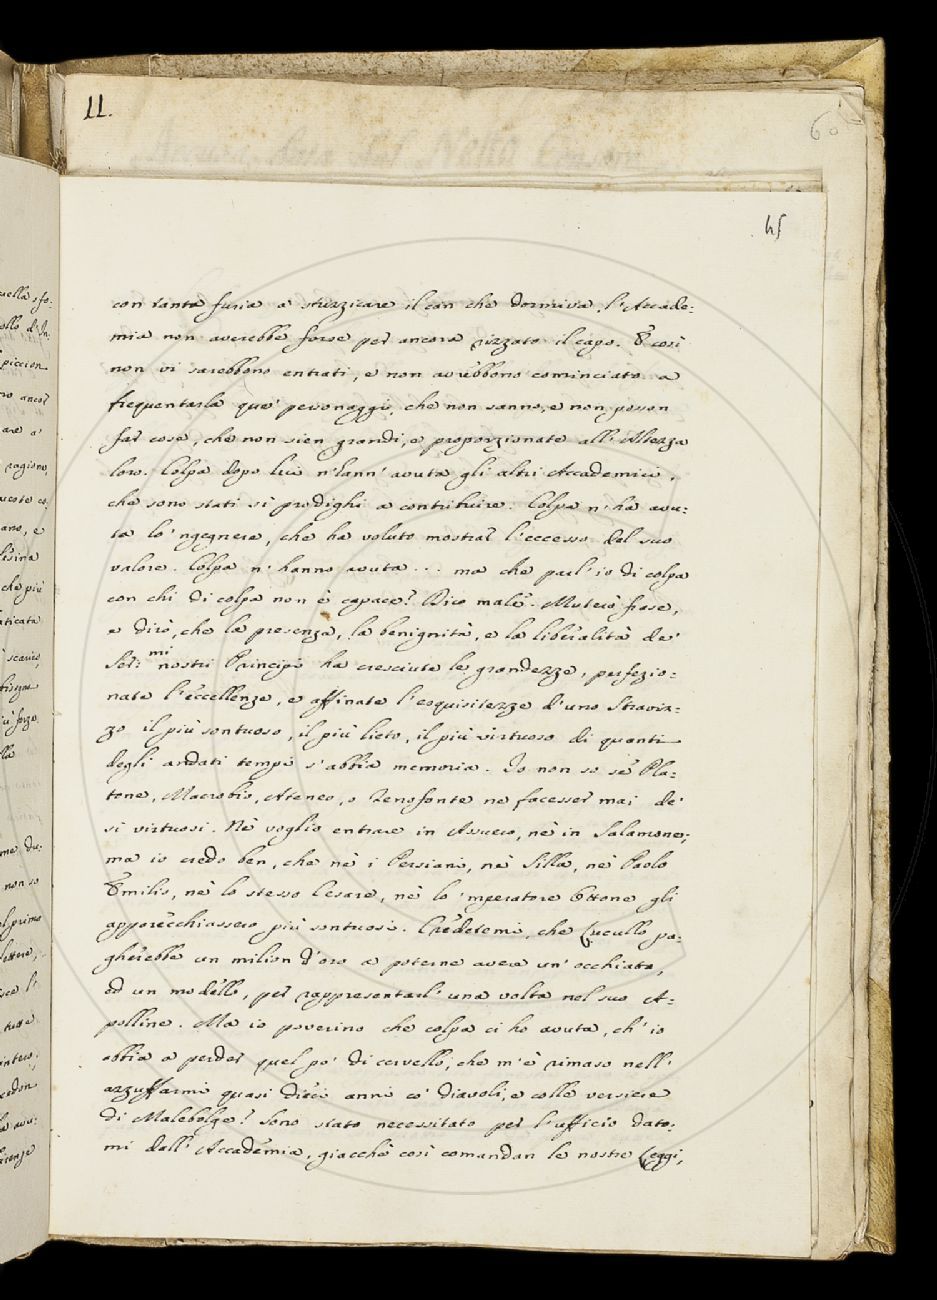 11.
60
45
con tanta furia a stuzzicare il can che dormiva, l'Accade:
mia non averebbe forse per ancora rizzato il capo. E così
non vi sarebbono entrati, e non avrebbono cominciato a
frequentarla que' personaggi, che non sanno, e non posson
far cose, che non sien grandi, e proporzionate all'Altezza
loro. Colpa dopo lui n'hann' avuta gli altri Accademici,
che sono stati sì prodighi a contribuire. Colpa n'ha avu:
ta lo 'ngegnere, che ha voluto mostrar l'eccesso del suo
valore. Colpa n'hanno avuta... ma che parl'io di colpa
con chi di colpa non è capace? Dico male. Muterò frase,
e dirò, che la presenza, la benignità, e la liberalità de'
Ser:mi nostri Principi ha cresciute le grandezze, perfezio:
nate l'eccellenze, e affinate l'esquisitezze d'uno Straviz:
zo il più sontuoso, il più lieto, il più virtuoso di quanti
degli andati tempi s'abbia memoria. Io non so se Pla:
tone, Macrobio, Ateneo, o Zenofonte ne facesser mai de'
sì virtuosi. Nè voglio entrare in Assuero, nè in Salamone;
ma io credo ben, che nè i Persiani, nè Silla, nè Paolo
Emilio, nè lo stesso Cesare, nè lo 'mperatore Ottone gli
apparecchiassero più sontuosi. Credetemi, che Lucullo pa:
gherebbe un milion d'oro a poterne avere un'occhiata,
od un modello, per rappresentarl' una volta nel suo A:
polline. Ma io poverino che colpa ci ho avuta, ch'io
abbia a perder quel po' di cervello, che m'è rimaso nell'
azzuffarmi quasi dieci anni co' diavoli, e colle versiere
di Malebolge? Sono stato necessitato per l'ufficio dato:
mi dall'Accademia, giacchè così comandan le nostre Leggi,